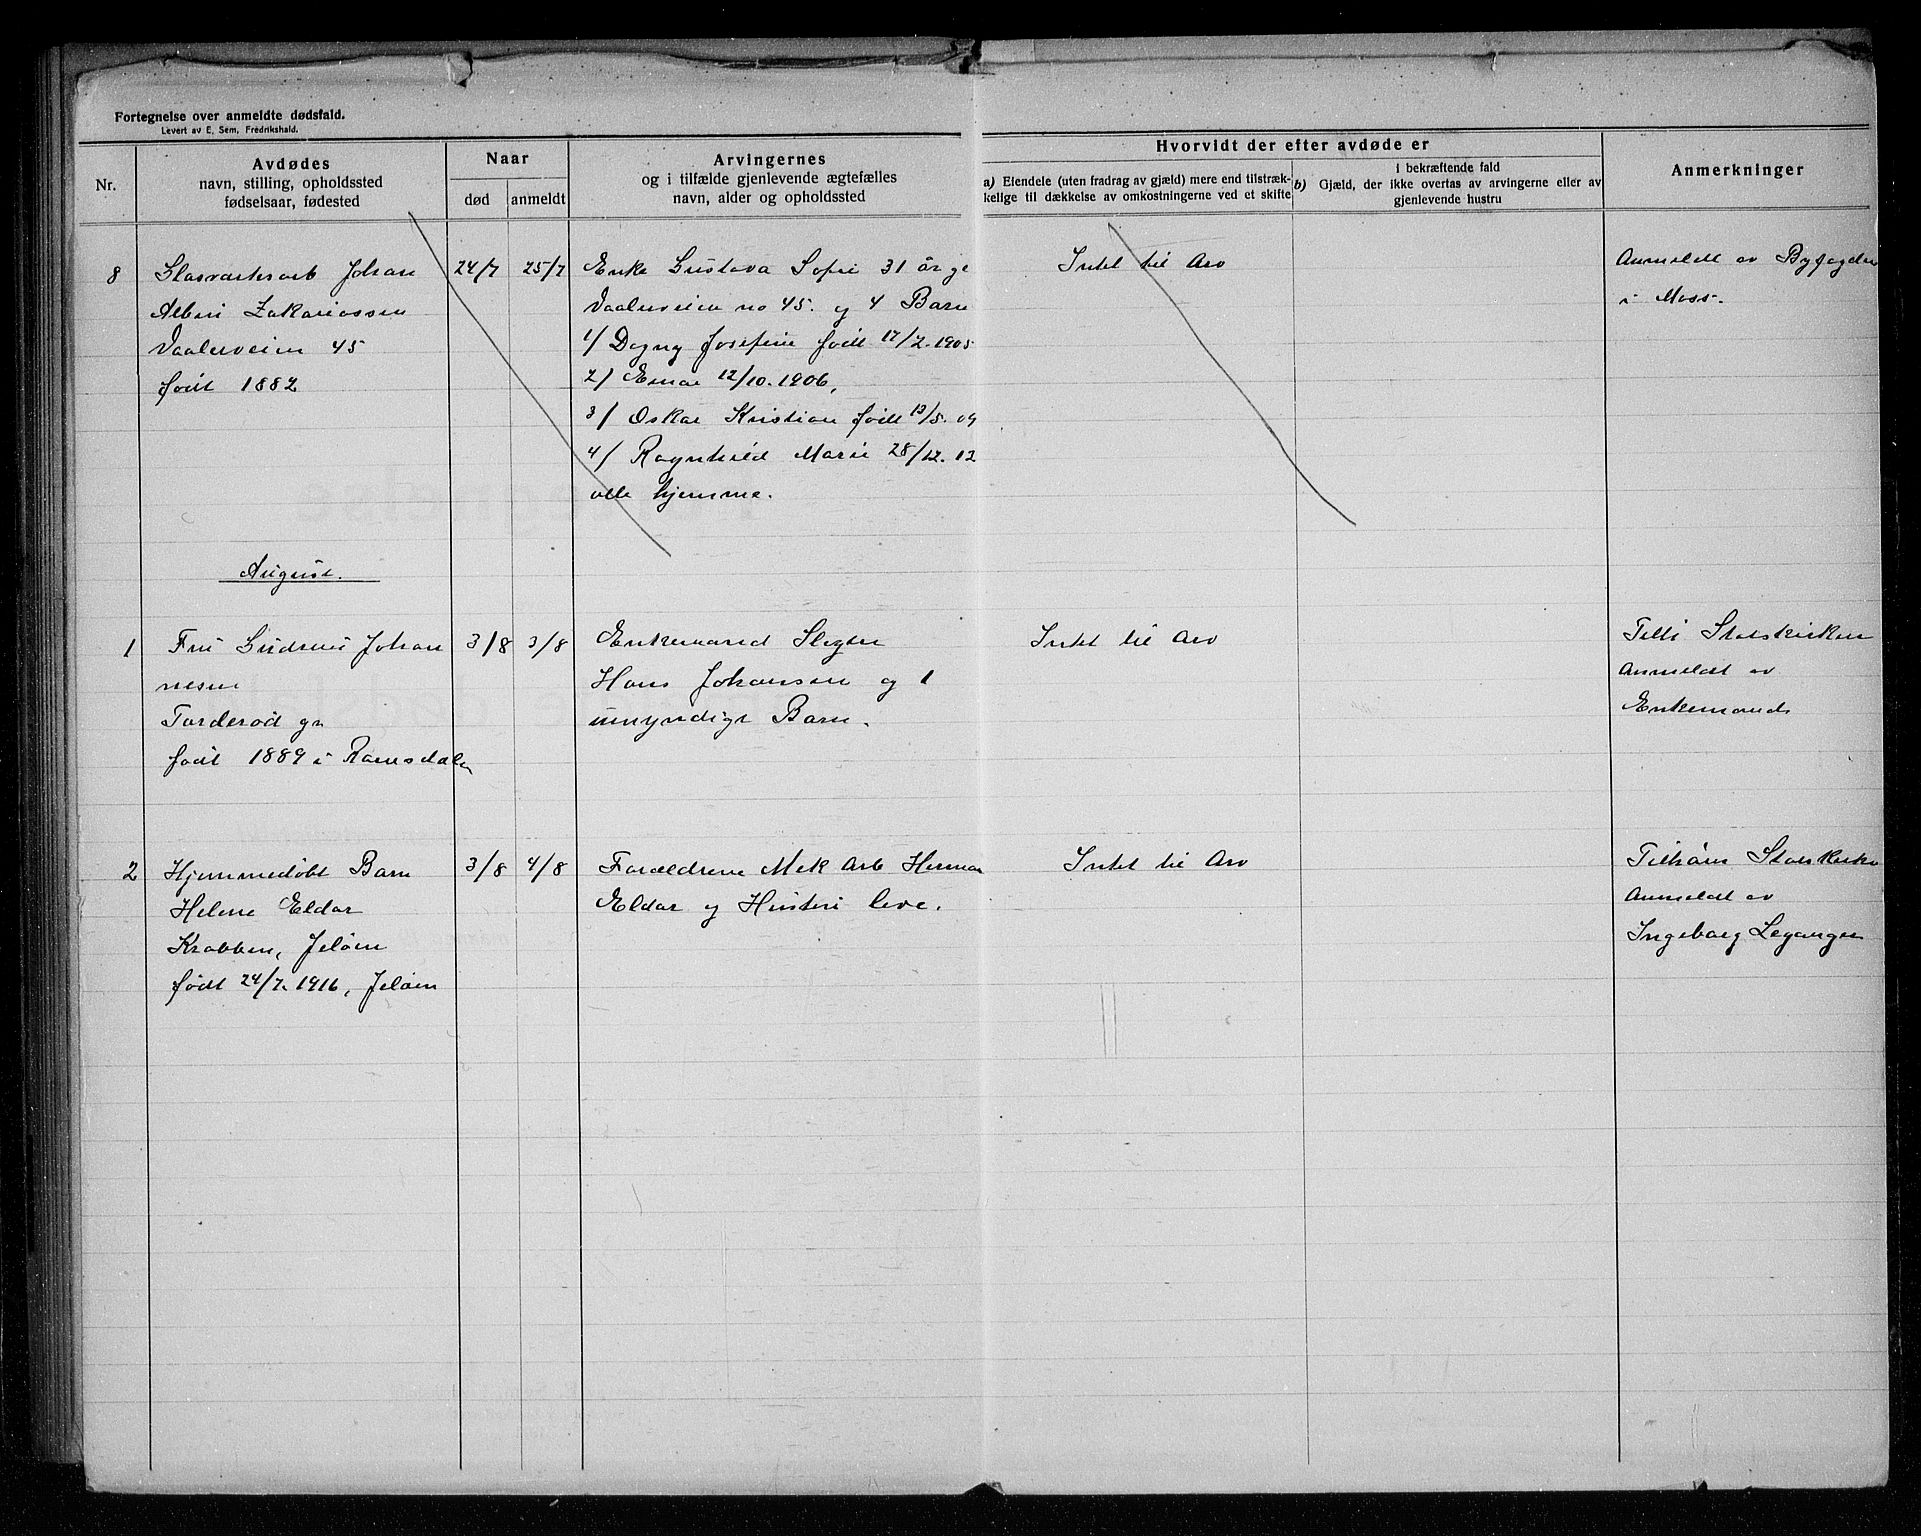 Fortegnelse over anmeldte dødsfald.
Levert av E. Sem, Fredrikshald.
Nr.
Avdødes
navn, stilling, opholdssted
fødselsaar, fødested
Naar
død
anmeldt
Arvingernes
og i tilfælde gjenlevende ægtefælles
navn, alder og opholdssted
Hvorvidt der efter avdøde er
a) Eiendele (uten fradrag av gjæld) mere end tilstræk-
kelige til dækkelse av omkostningerne ved et skifte
i bekræftende fald
b) Gjæld, der ikke overtas av arvingerne eller av
gjenlevende hustru
Anmerkninger
8
Glasværksarb Johan
Albert Zakariassen
Vaalerveien 45
født 1882
24/7
25/7
Enke Gustava Sofie 31 år g
Vaalerveien no 45. og 4 Barn
1/ Dagny Josefine født 17/2. 1905
2/ Einar 12/10. 1906,
3/ Oskar Kristian født 13/5. 09
4/ Ragnhild Marie 28/12. 12
alle hjemme.
Intet til Arv
Anmeldt av Byfogden
i Moss.
August.
1
Fru Gudrun Johan
nesen
Torderød gr
født 1889 i Ramsdalen
3/8
3/8
Enkemand Slagter
Hans Johansen og 1
umyndige Barn.
Intet til Arv
Till Statskirken
Anmeldt av
Enkemand
2
Hjemmedøbt Barn
Helene Eldar
Krabben, Jeløen
født 24/7. 1916, Jeløen
3/8
4/8
Forældrene Mek Arb Herman
Eldar og Hustru leve.
Intet til Arv
Tilhører Statskirke
Anmeldt av
Ingeborg Leganger